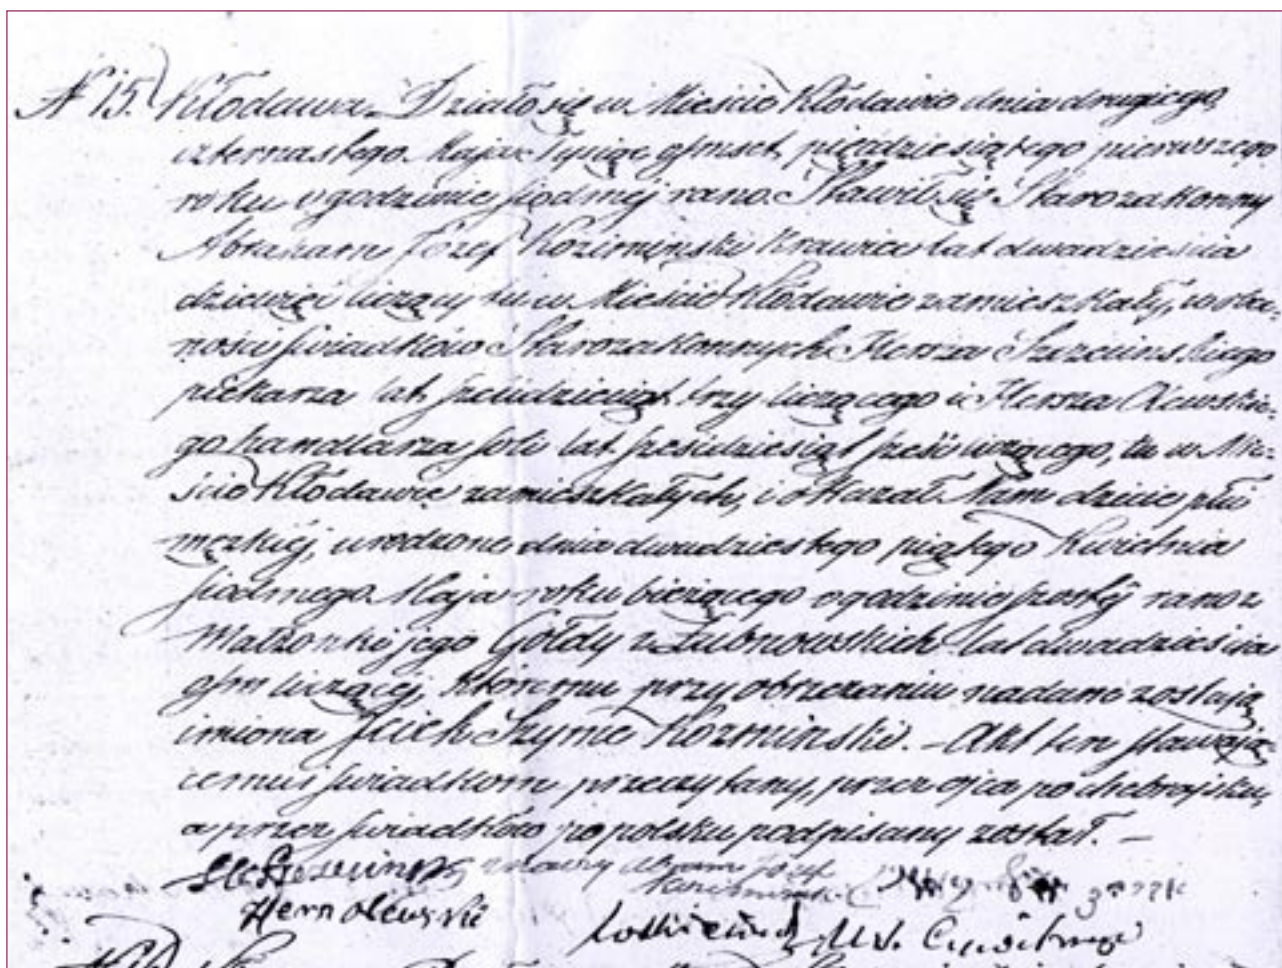 N 15. Kłodawa. Działo się w Mieście Kłodawie dnia drugiego
czternastego Maja Tysiąc ośmset pięćdziesiątego pierwszego
roku o godzinie siodmej rano. Stawił się Starozakonny
Abraham Józef Kozimiński Krawiec lat dwadzieścia
dziewięć liczący tu w Mieście Kłodawie zamieszkały, w obec-
ności świadków Starozakonnych Hersza Szczecinskiego
piekarza lat sześćdziesiąt trzy liczącego i Hersza Olewskie-
go handlarza soli lat sześćdziesiąt sześć liczącego, tu w Mie-
ście Kłodawie zamieszkałych, i okazał Nam dziecię płci
męzkiéj, urodzone dnia dwudziestego piątego Kwietnia
siodmego Maja roku bieżącego o godzinie szostéj rano z
Małżonki jego Gołdy z Łubnowskich lat dwadzieścia
ośm liczącéj, któremu przy obrzezaniu nadane zostają
imiona Icek Szyme Kozminski. – Akt ten stawają-
cemu i świadkom przeczytany, przez ojca po hebrajsku,
a przez świadków po polsku podpisany został. –
Szczecinski Abram Józef
Hersz Olewski